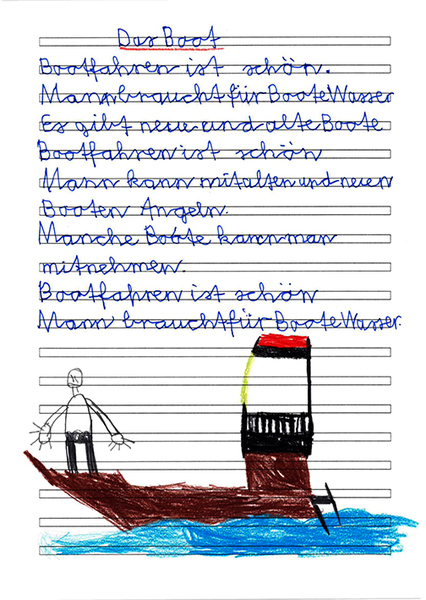 Das Boot
Bootfahren ist schön.
Mann braucht für Boote Wasser
Es gibt neue und alte Boote
Bootfahren ist schön
Mann kann mit alten und neuen
Booten Angeln.
Manche Boote kann man
mitnehmen.
Bootfahren ist schön
Mann braucht für Boote Wasser.